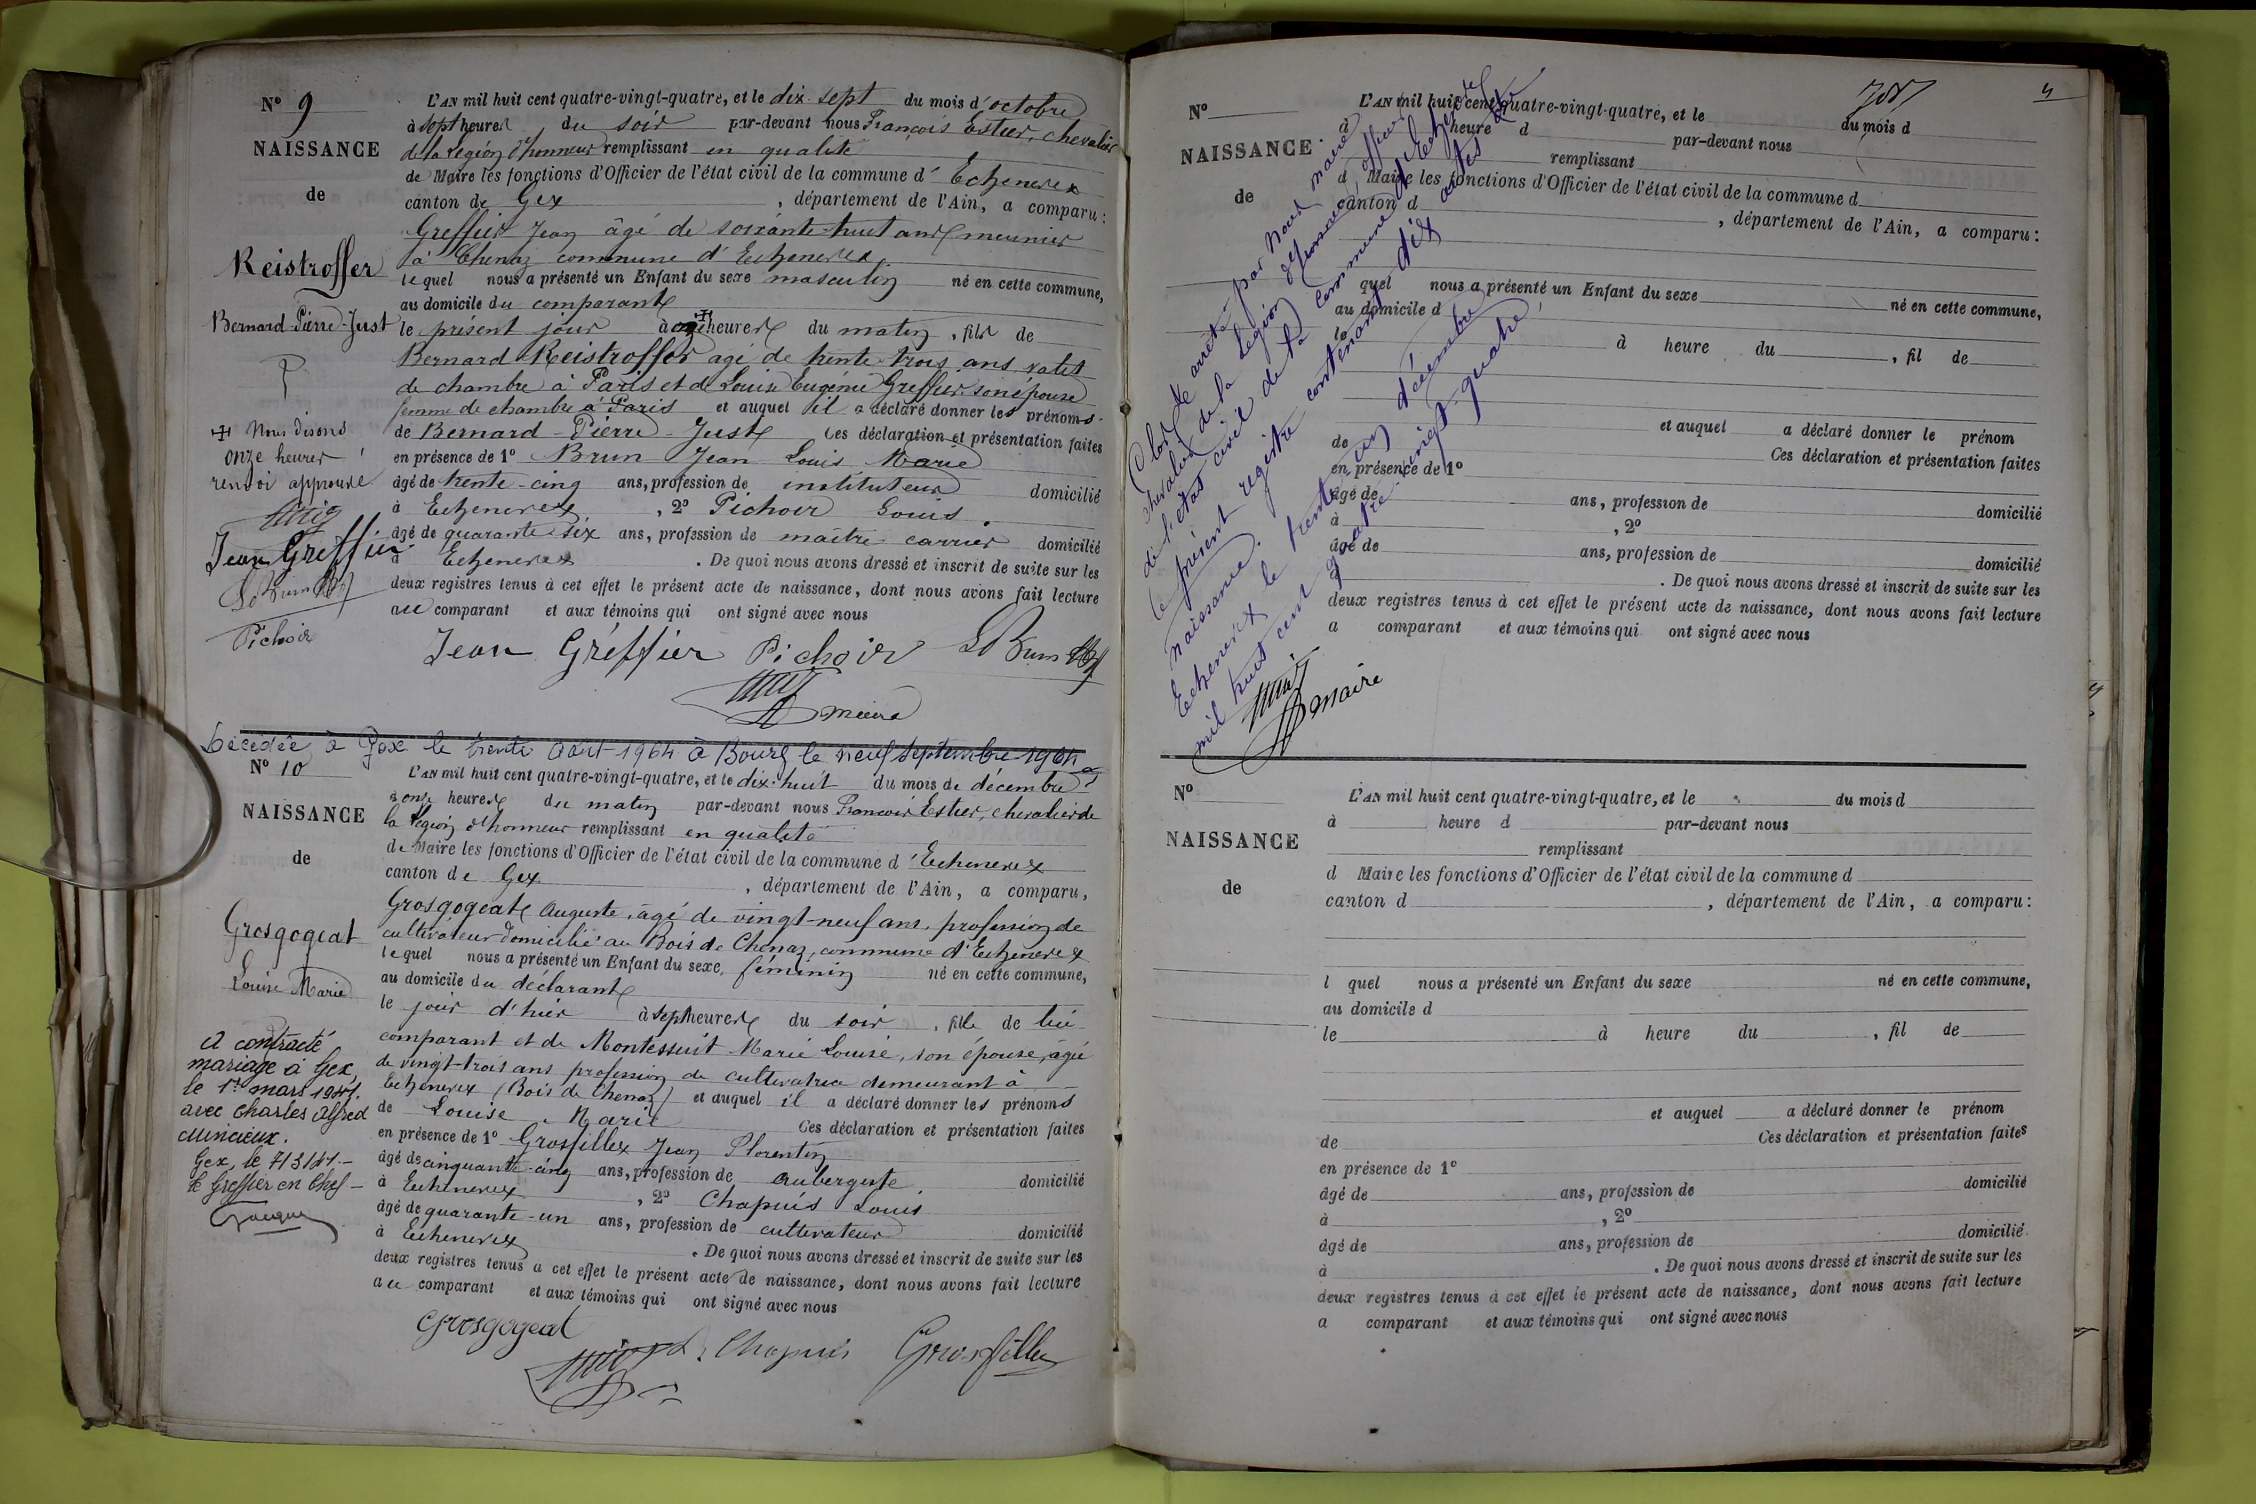 N° 9
NAISSANCE
de
Reistroffer
Bernard-Pierre-Just
Nous disons
onze heures
renvoi approuvé
Jean Greffier
Pichoir
L'AN mil huit cent quatre-vingt-quatre, et le dix-sept du mois d'octobre
à sept heures du soir par-devant nous François Estier, chevalier
de la Légion d'honneur remplissant en qualité
de Maire les fonctions d'Officier de l'état civil de la commune d'Echenevex
canton de Gex, département de l'Ain, a comparu:
Greffier Jean âgé de soixante-huit ans meunier
à Chenaz commune d'Echenevex
lequel nous a présenté un Enfant du sexe masculin né en cette commune,
au domicile du comparant
le présent jour à onze heures du matin, fils de
Bernard Reistroffer agé de trente-trois ans valet
de chambre à Paris et de Louise Eugénie Greffier son épouse
femme de chambre à Paris et auquel il a déclaré donner les prénoms
de Bernard-Pierre-Just Ces déclaration et présentation faites
en présence de 1° Brun Jean Louis Marie
âgé de trente-cinq ans, profession de instituteur domicilié
à Echenevex, 2° Pichoir Louis.
âgé de quarante-six ans, profession de maître carrier domicilié
à Echenevex. De quoi nous avons dressé et inscrit de suite sur les
deux registres tenus à cet effet le présent acte de naissance, dont nous avons fait lecture
au comparant et aux témoins qui ont signé avec nous
Jean Gréffier Pichoir L Brun
Décédée à Gex le trente Août 1964 à Bourg le neuf septembre 1964
N° 10
NAISSANCE
de
Grosgogeat
Louise Marie
A contracté
mariage à Gex,
le 1er mars
avec Charles Alfred
Mincieux.
Gex, le
le Greffier en Chef
L'AN mil huit cent quatre-vingt-quatre, et le dix-huit du mois de décembre
à onze heures du matin par-devant nous François Estier, chevalier de
la Légion d'honneur remplissant en qualité
de Maire les fonctions d'Officier de l'état civil de la commune d'Echenevex
canton de Gex, département de l'Ain, a comparu,
Grosgogeat Auguste, âgé de vingt-neuf ans, profession de
cultivateur domicilié au Bois de Chenaz, commune d'Echenevex
lequel nous a présenté un Enfant du sexe féminin né en cette commune,
au domicile du déclarant
le jour d'hier à sept heures du soir, fille de lui
comparant et de Montessuit Marie Louise, son épouse, âgée
de vingt-trois ans profession de cultivatrice demeurant à
Echenevex (Bois de Chenaz) et auquel il a déclaré donner les prénoms
de Louise Marie Ces déclaration et présentation faites
en présence de 1° Grosfillex Jean Florentin
âgé de cinquante-cinq ans, profession de aubergiste domicilié
à Echenevex, 2° Chapuis Louis
âgé de quarante-un ans, profession de cultivateur domicilié
à Echenevex. De quoi nous avons dressé et inscrit de suite sur les
deux registres tenus à cet effet le présent acte de naissance, dont nous avons fait lecture
au comparant et aux témoins qui ont signé avec nous
Grosgogeat
Chapuis Grosfillex
4
N°
NAISSANCE
de
L'AN mil huit cent quatre-vingt-quatre, et le du mois d
à heure d par-devant nous
remplissant
d Maire les fonctions d'Officier de l'état civil de la commune d
canton d, département de l'Ain, a comparu:
quel nous a présenté un Enfant du sexe né en cette commune,
au domicile d
le à heure du, fil de
et auquel a déclaré donner le prénom
de Ces déclaration et présentation faites
en présence de 1°
âgé de ans, profession de domicilié
à, 2°
âgé de ans, profession de domicilié
. De quoi nous avons dressé et inscrit de suite sur les
deux registres tenus à cet effet le présent acte de naissance, dont nous avons fait lecture
a comparant et aux témoins qui ont signé avec nous
Clos et arrêté par nous maire
chevalier de la Légion d'honneur, officier
de l'état civil de la commune d'Echenevex
le présent registre contenant dix actes de
naissance.
Echenevex le trente un décembre
mil huit cent quatre-vingt-quatre
maire
N°
NAISSANCE
de
L'AN mil huit cent quatre-vingt-quatre, et le du mois d
à heure d par-devant nous
remplissant
d Maire les fonctions d'Officier de l'état civil de la commune d
canton d, département de l'Ain, a comparu:
l quel nous a présenté un Enfant du sexe né en cette commune,
au domicile d
le à heure du, fil de
et auquel a déclaré donner le prénom
de Ces déclaration et présentation faites
en présence de 1°
âgé de ans, profession de domicilié
à, 2°
âgé de ans, profession de domicilié
à. De quoi nous avons dressé et inscrit de suite sur les
deux registres tenus à cet effet le présent acte de naissance, dont nous avons fait lecture
a comparant et aux témoins qui ont signé avec nous